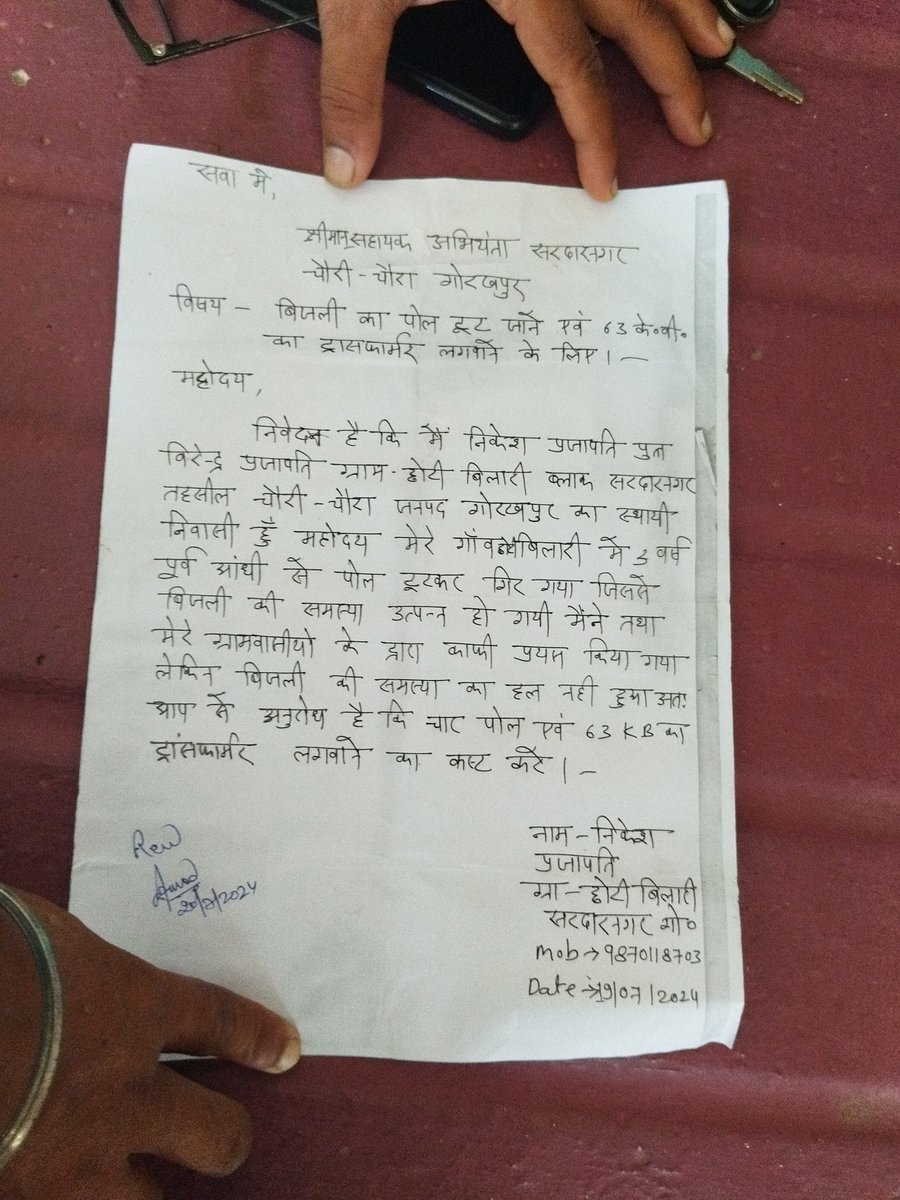 सेवा मे,
श्रीमान् सहायक अभियंता सरदारनगर
चौरी-चौरा गोरखपुर
विषय - बिजली का पोल टूट जाने एवं 63 के०वी०
का ट्रासफार्मर लगवाने के लिए।-
महोदय,
निवेदन है कि मैं निकेश प्रजापति पुत्र
विरेन्द्र प्रजापति ग्राम-छोटी बिलारी ब्लाक सरदारनगर
तहसील चौरी-चौरा जनपद गोरखपुर का स्थायी
निवासी हूँ महोदय मेरे गाँव छोटी बिलारी में 3 वर्ष
पूर्व आंधी से पोल टूटकर गिर गया जिससे
बिजली की समस्या उत्पन्न हो गयी मैंने तथा
मेरे ग्रामवासीयो के द्वारा काफी प्रयास किया गया
लेकिन बिजली की समस्या का हल नही हुआ अतः
आप से अनुरोध है कि चार पोल एवं 63 KB का
ट्रांसफार्मर लगवाने का कष्ट करें।-
नाम-निकेश
प्रजापति
ग्रा-छोटी बिलारी
सरदारनगर गो०
Mob→9870118703
Date→19/07/2024